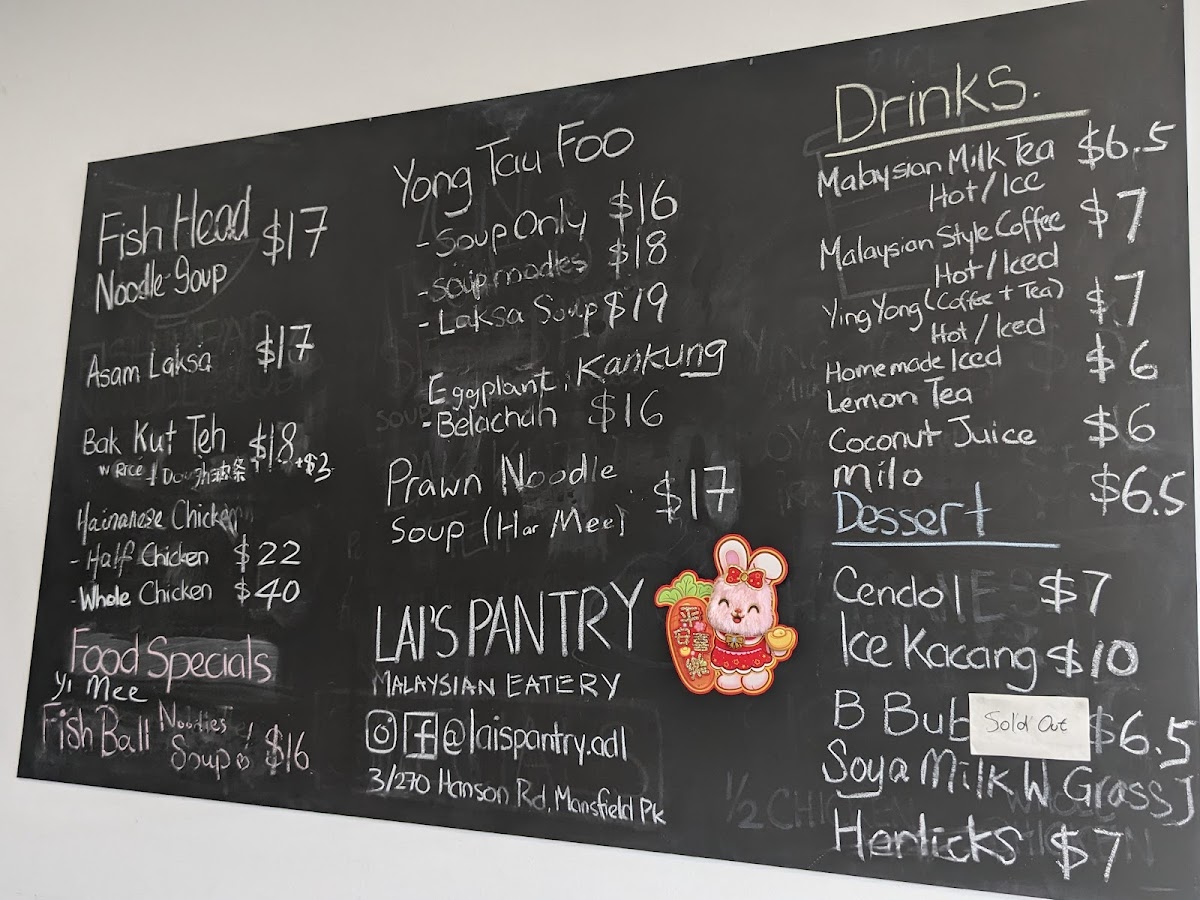 Fish Head $17
Noodle Soup
Asam Laksa $17
Bak Kut Teh $18
w Rice +$2
油条
Hainanese Chicken
- Half Chicken $22
- Whole Chicken $40
Food Specials
Yi Mee
Fish Ball Noodles /
Soup $16
Yong Tau Foo
- Soup Only $16
- soup noodles $18
- Laksa Soup $19
Eggplant, Kankung
- Belachan $16
Prawn Noodle
Soup (Har Mee) $17
LAI'S PANTRY
MALAYSIAN EATERY
@laispantry.adl
3/270 Hanson Rd, Mansfield Pk
平安喜樂
Drinks.
Malaysian Milk Tea $6.5
Hot/Ice
Malaysian Style Coffee $7
Hot/Iced
Ying Yong (Coffee + Tea) $7
Hot/Iced
Homemade Iced $6
Lemon Tea
Coconut Juice $6
Milo $6.5
Dessert
Cendol $7
Ice Kacang $10
B Bub $6.5
Sold Out
Soya Milk W Grass J
Horlicks $7
1/2 CHICKEN